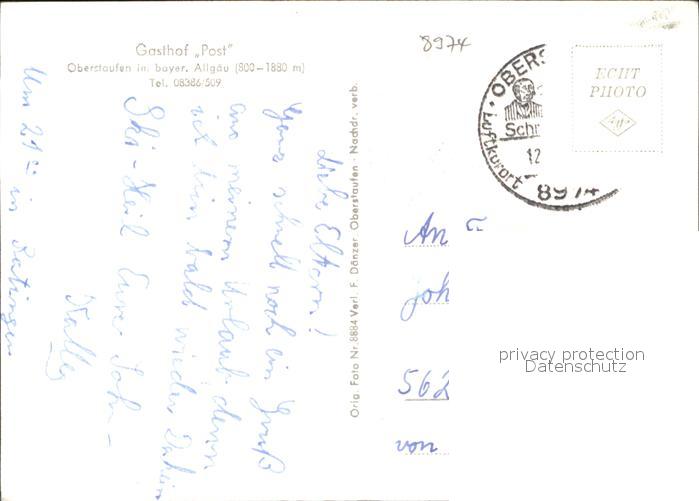 Gasthof „Post"
Oberstaufen im bayer. Allgäu (800–1880 m)
Tel. 08386/509
8974
ECHT
PHOTO
OBERS
Schr
12
Luftkurort
8974
Liebe Eltern!
Ganz schnell noch ein Gruß
aus meinem Urlaub denn
ich bin bald wieder Daheim
Ski-Heil Euer Sohn
Um 21 in
Orig. Foto Nr. 8884 Verl. F. Dänzer, Oberstaufen · Nachdr. verb.
An
Joh
562
von
privacy protection
Datenschutz